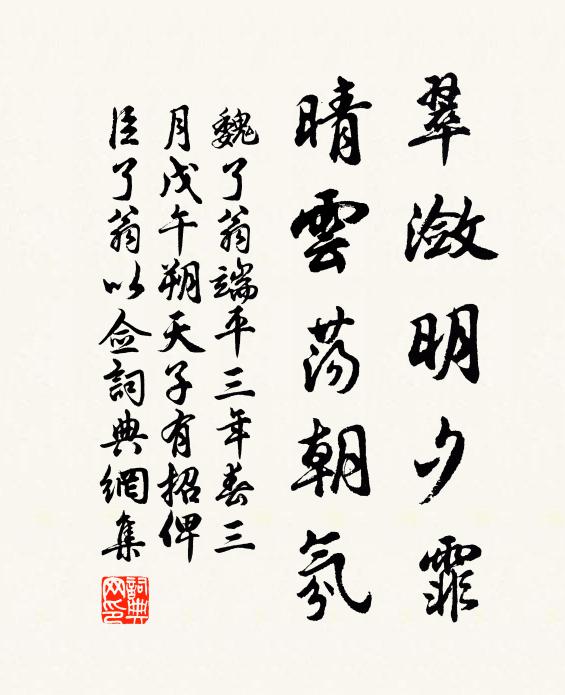 翠潋明夕霏
晴雲荡朝氛
魏了翁端平三年春三
月戊午朔天子有招俾
臣了翁以佥詞典網集
詞典
网印